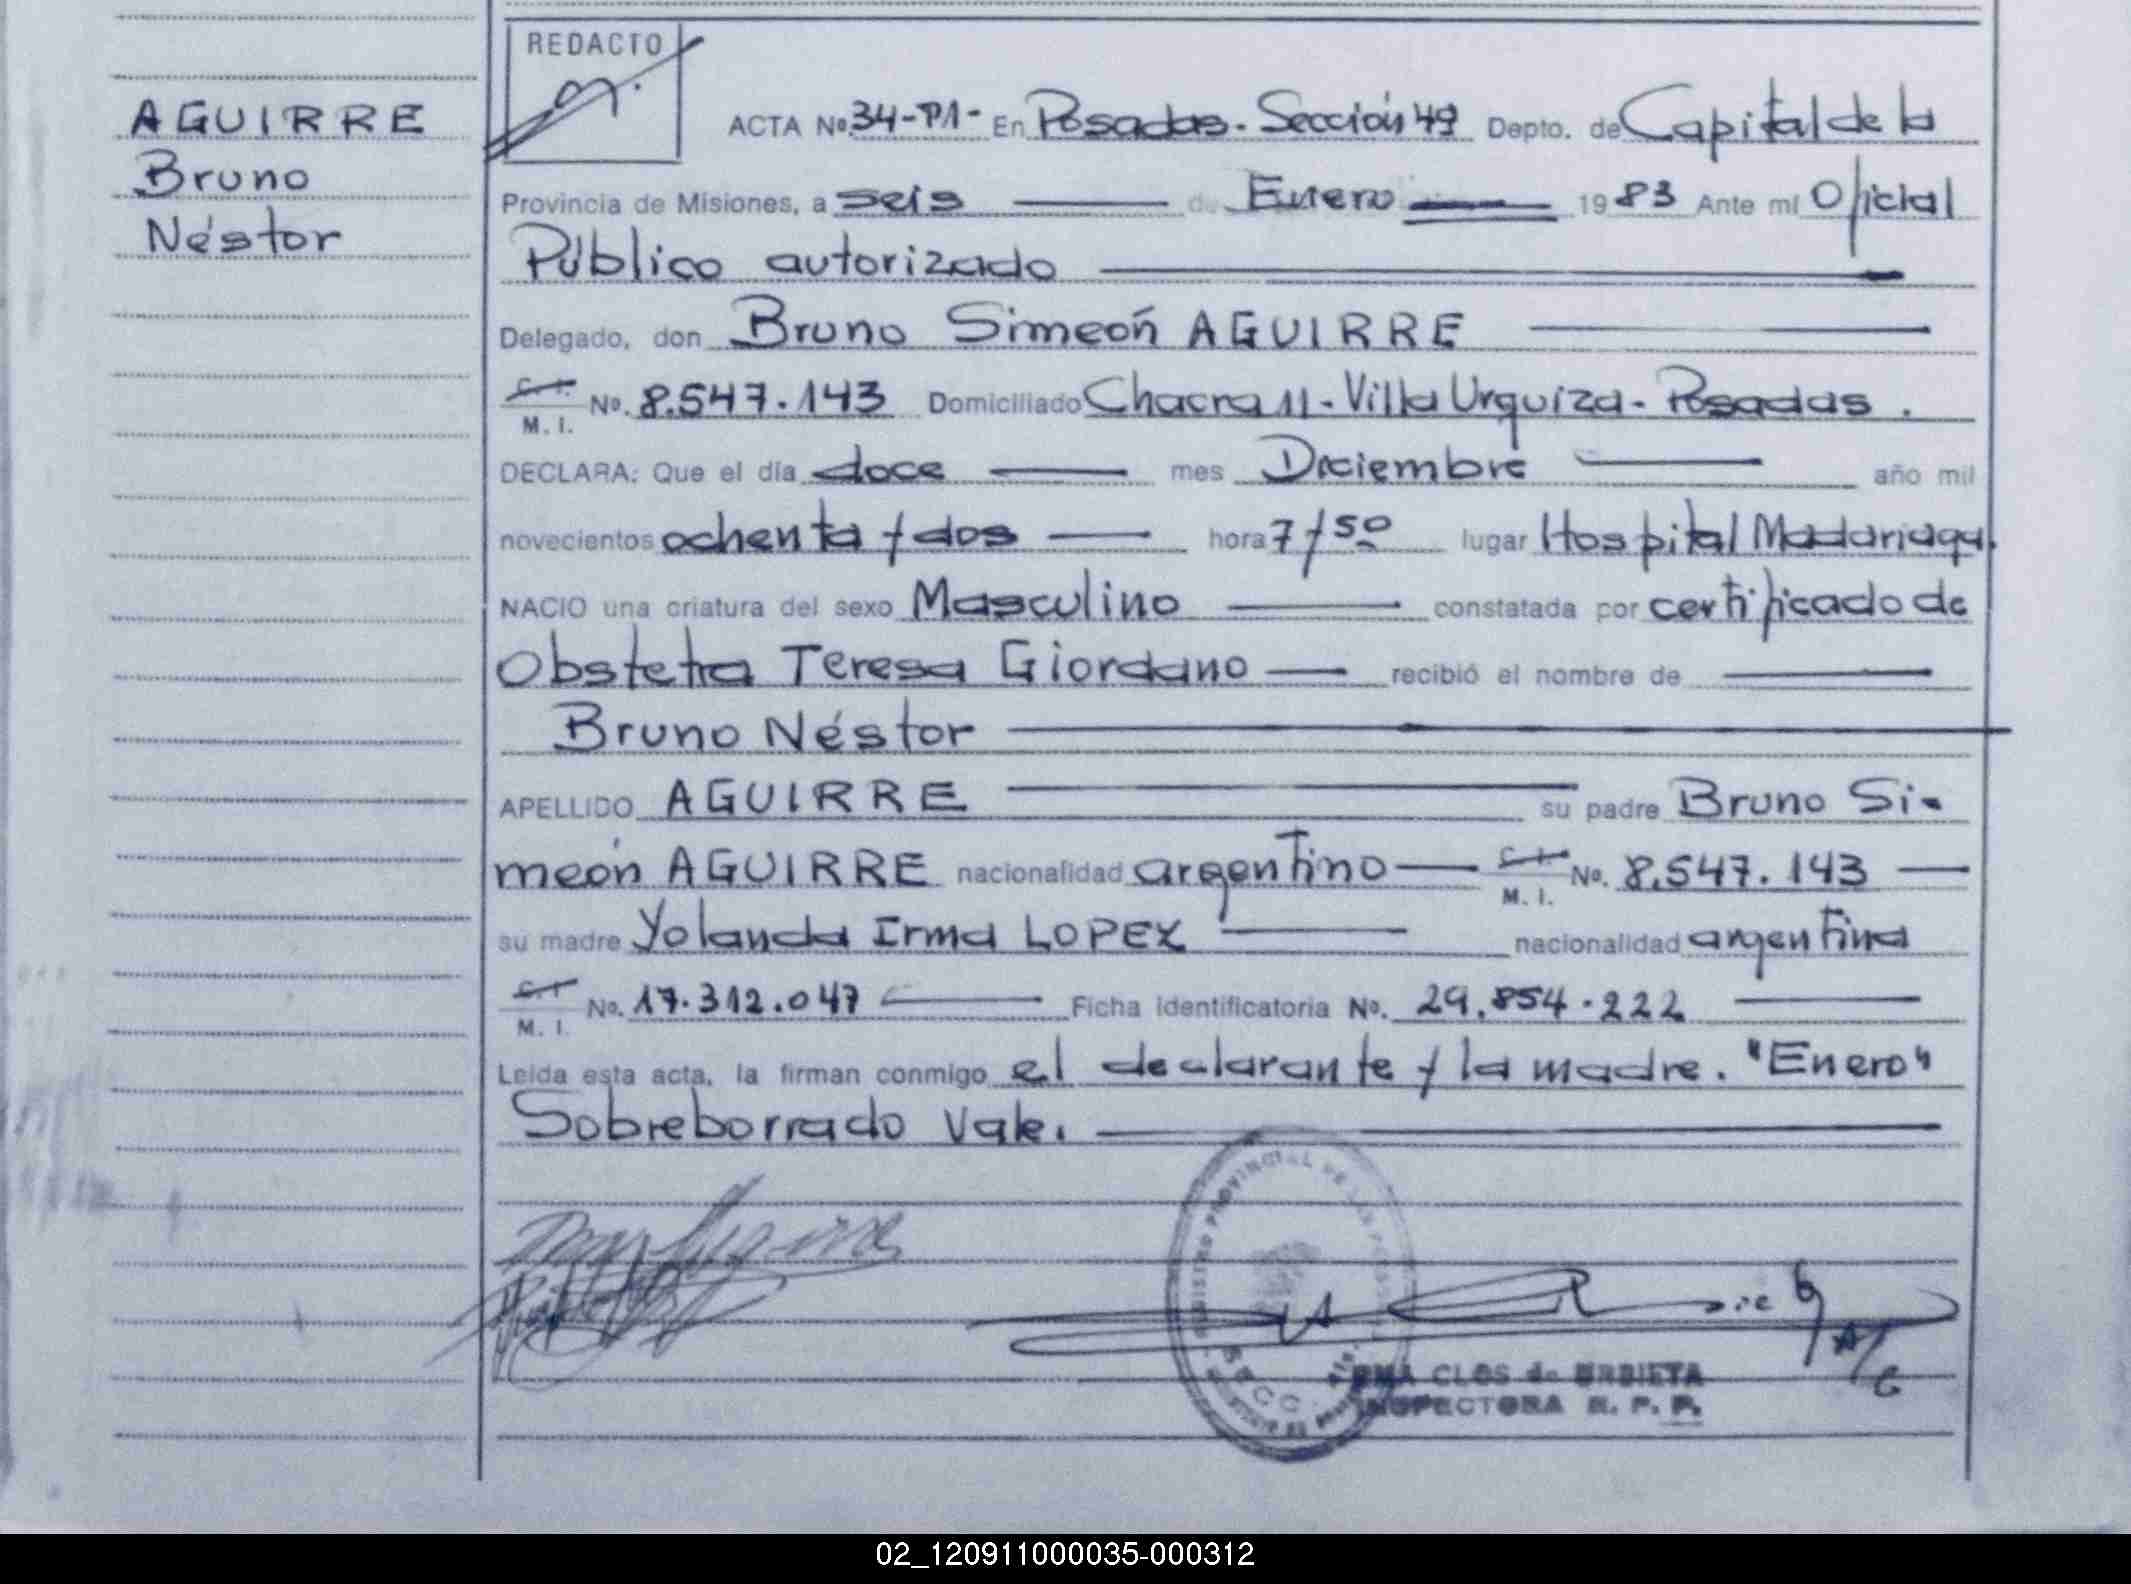 REDACTO
AGUIRRE
Bruno
Néstor
ACTA Nº 34-P1- En Posadas. Sección 4ª Depto. de Capital de la
Provincia de Misiones, a seis de Enero 1983 Ante mí Oficial
Público autorizado
Delegado, don Bruno Simeón AGUIRRE
C. I. M. I. Nº. 8.547.143 Domiciliado Chacra 11 - Villa Urquiza - Posadas.
DECLARA: Que el día doce mes Diciembre año mil
novecientos ochenta y dos hora 7 y 50 lugar Hospital Madariaga.
NACIO una criatura del sexo Masculino constatada por certificado de
Obstetra Teresa Giordano recibió el nombre de
Bruno Néstor
APELLIDO AGUIRRE su padre Bruno Si-
meón AGUIRRE nacionalidad argentino C. I. M. I. Nº. 8.547.143
su madre Yolanda Irma LOPEZ nacionalidad argentina
C. I. M. I. Nº. 17.312.047 Ficha identificatoria Nº. 29.854.222
Leída esta acta, la firman conmigo el declarante y la madre. "Enero"
Sobreborrado Vale.
PROVINCIAL DE LAS PERSONAS
CLOS de URBIETA
INSPECTORA R. P. P.
02_120911000035-000312